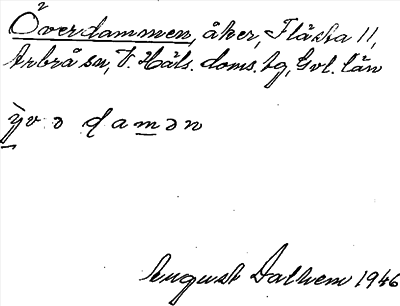 Överdammen, åker, Flästa 11,
Arbrå sn, V. Häls. doms. tg, Gvl. län
ỳv ə ɖ a m ə n
August Dalhem 1946